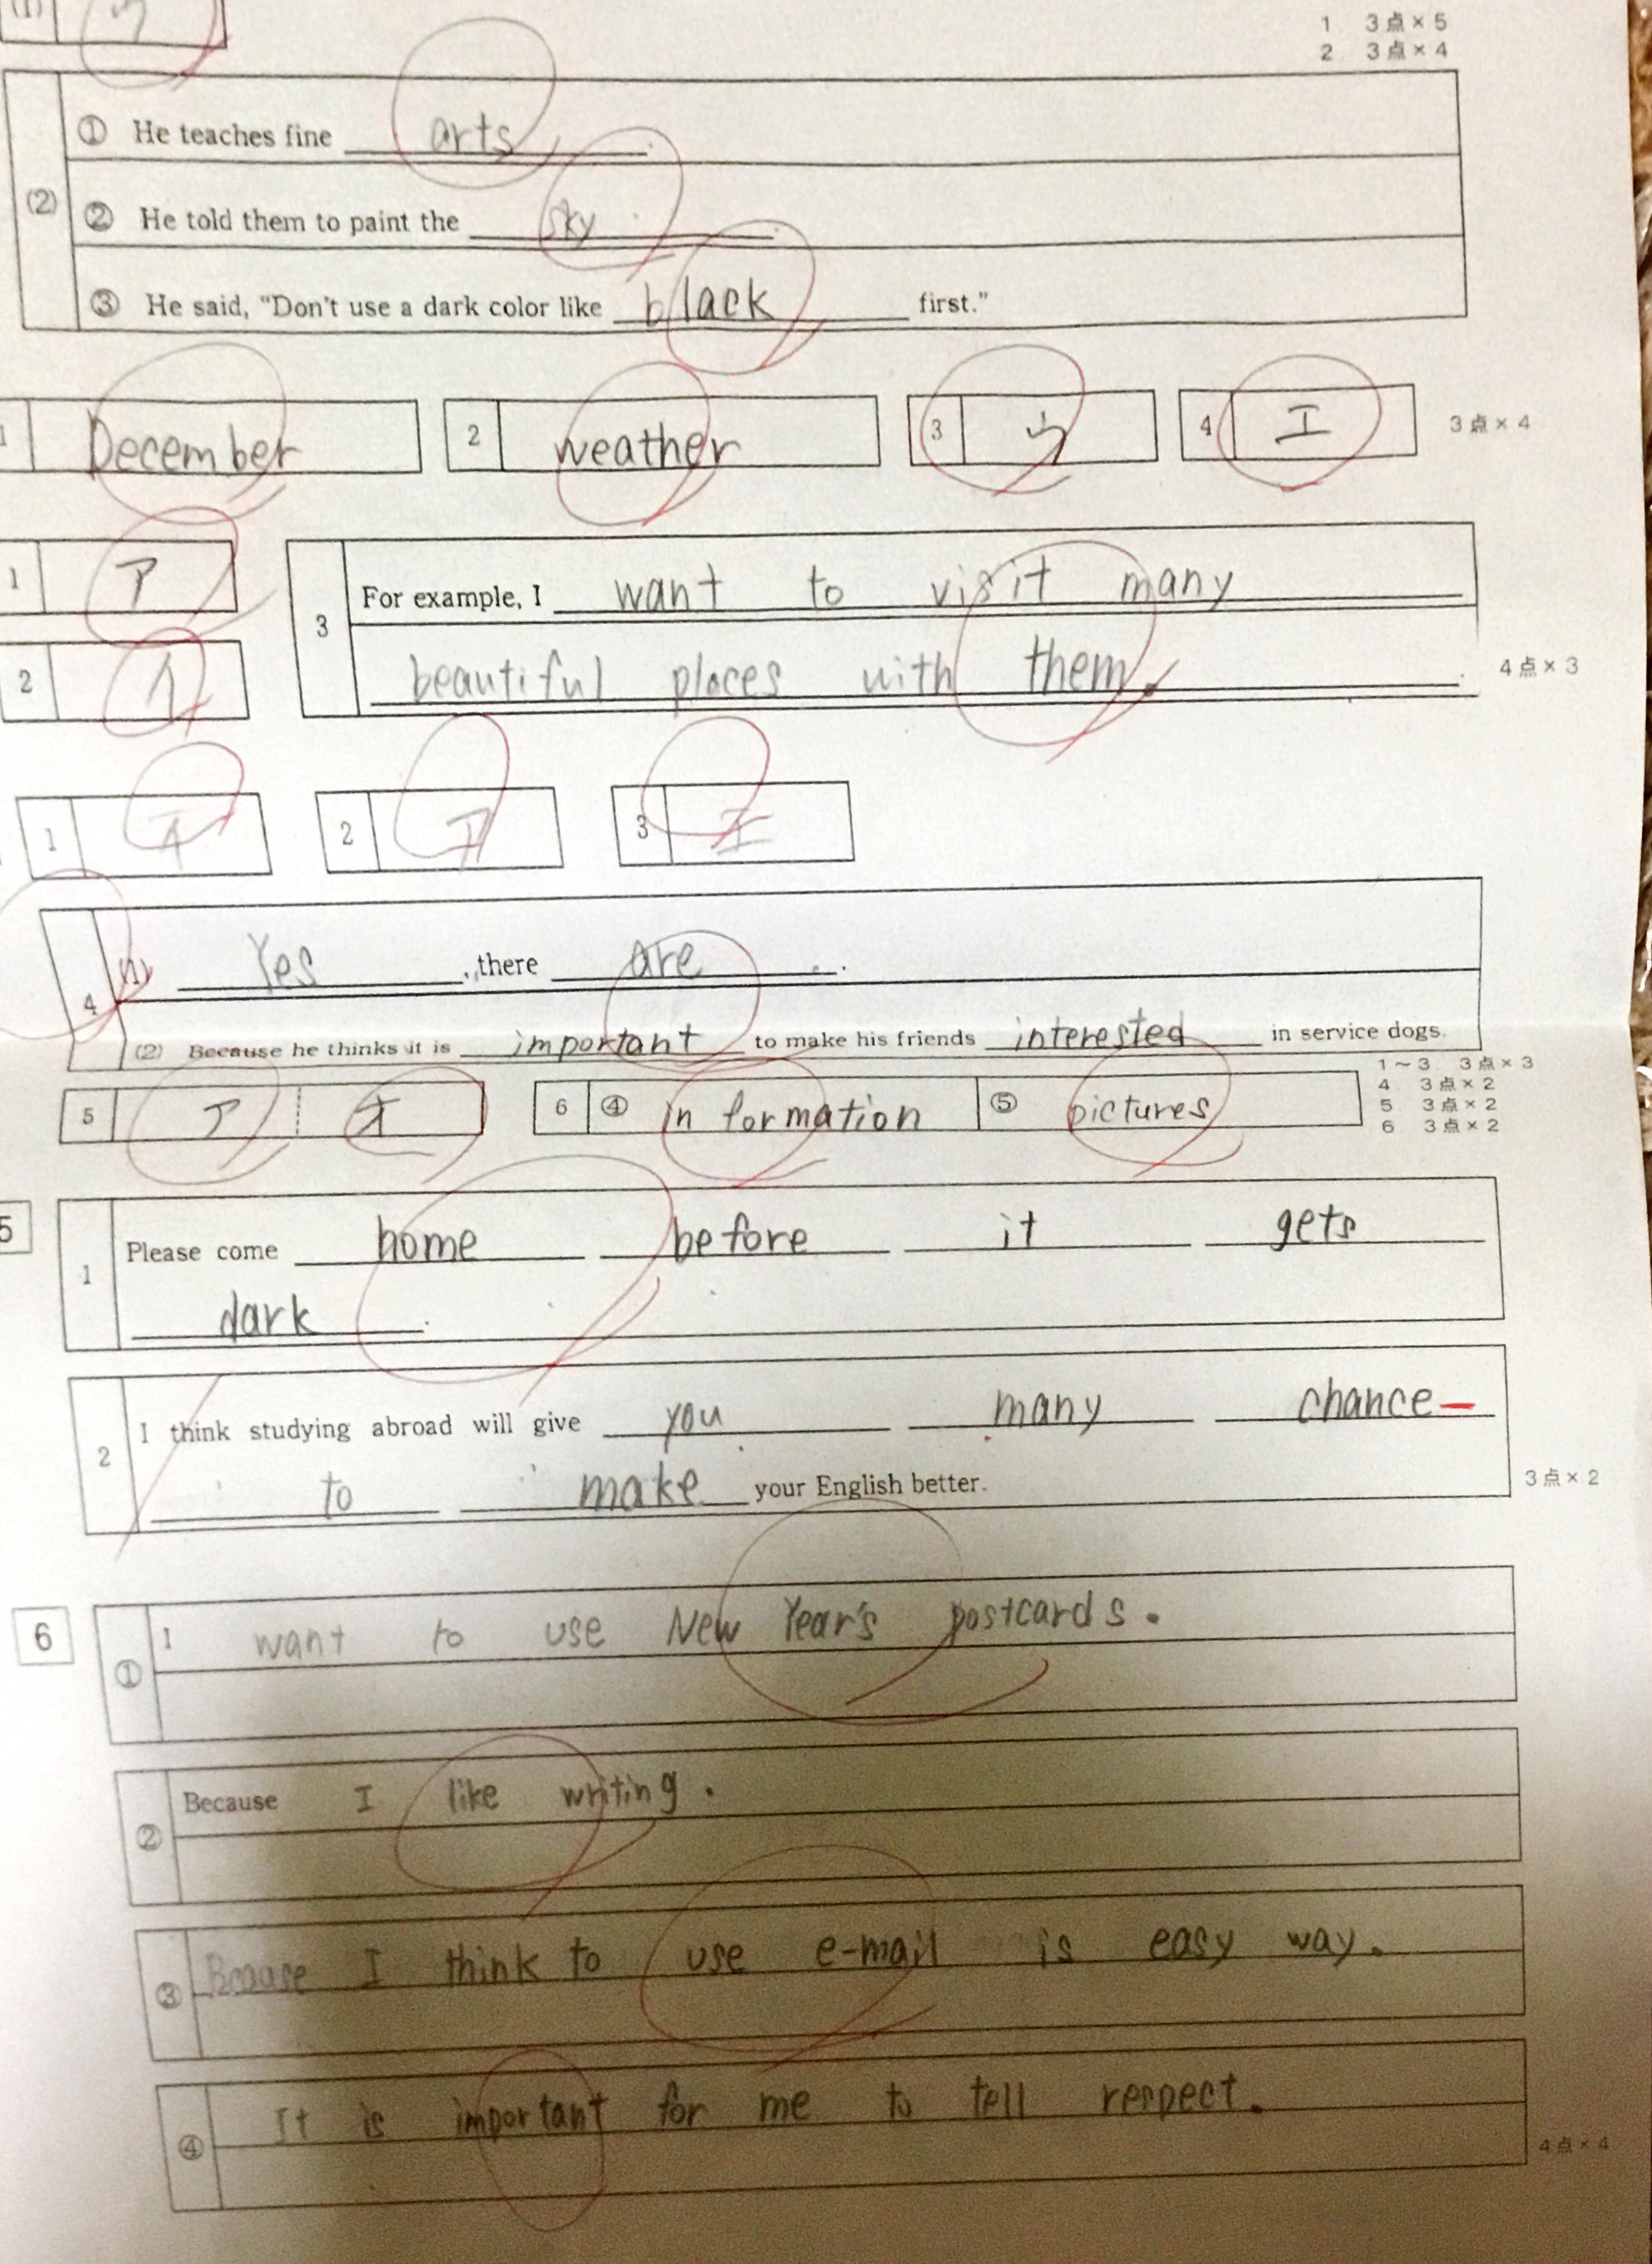 (1) ウ
1 3点×5
2 3点×4
(2)
① He teaches fine arts.
② He told them to paint the sky.
③ He said, “Don't use a dark color like black first.”
1 December 2 weather 3 ウ 4 エ 3点×4
1 ア
3 For example, I want to visit many
2 イ
beautiful places with them. 4点×3
1 2 エ 3 エ
4 (1) Yes, there are.
(2) Because he thinks it is important to make his friends interested in service dogs.
1～3 3点×3
4 3点×2
5 3点×2
6 3点×2
5 ア オ 6 ④ information ⑤ pictures
5
1 Please come home before it gets
dark.
2 I think studying abroad will give you many chance
to make your English better. 3点×2
6
① I want to use New Year's postcards.
② Because I like writing.
③ Bcause I think to use e-mail is easy way.
④ It is important for me to tell respect.
4点×4